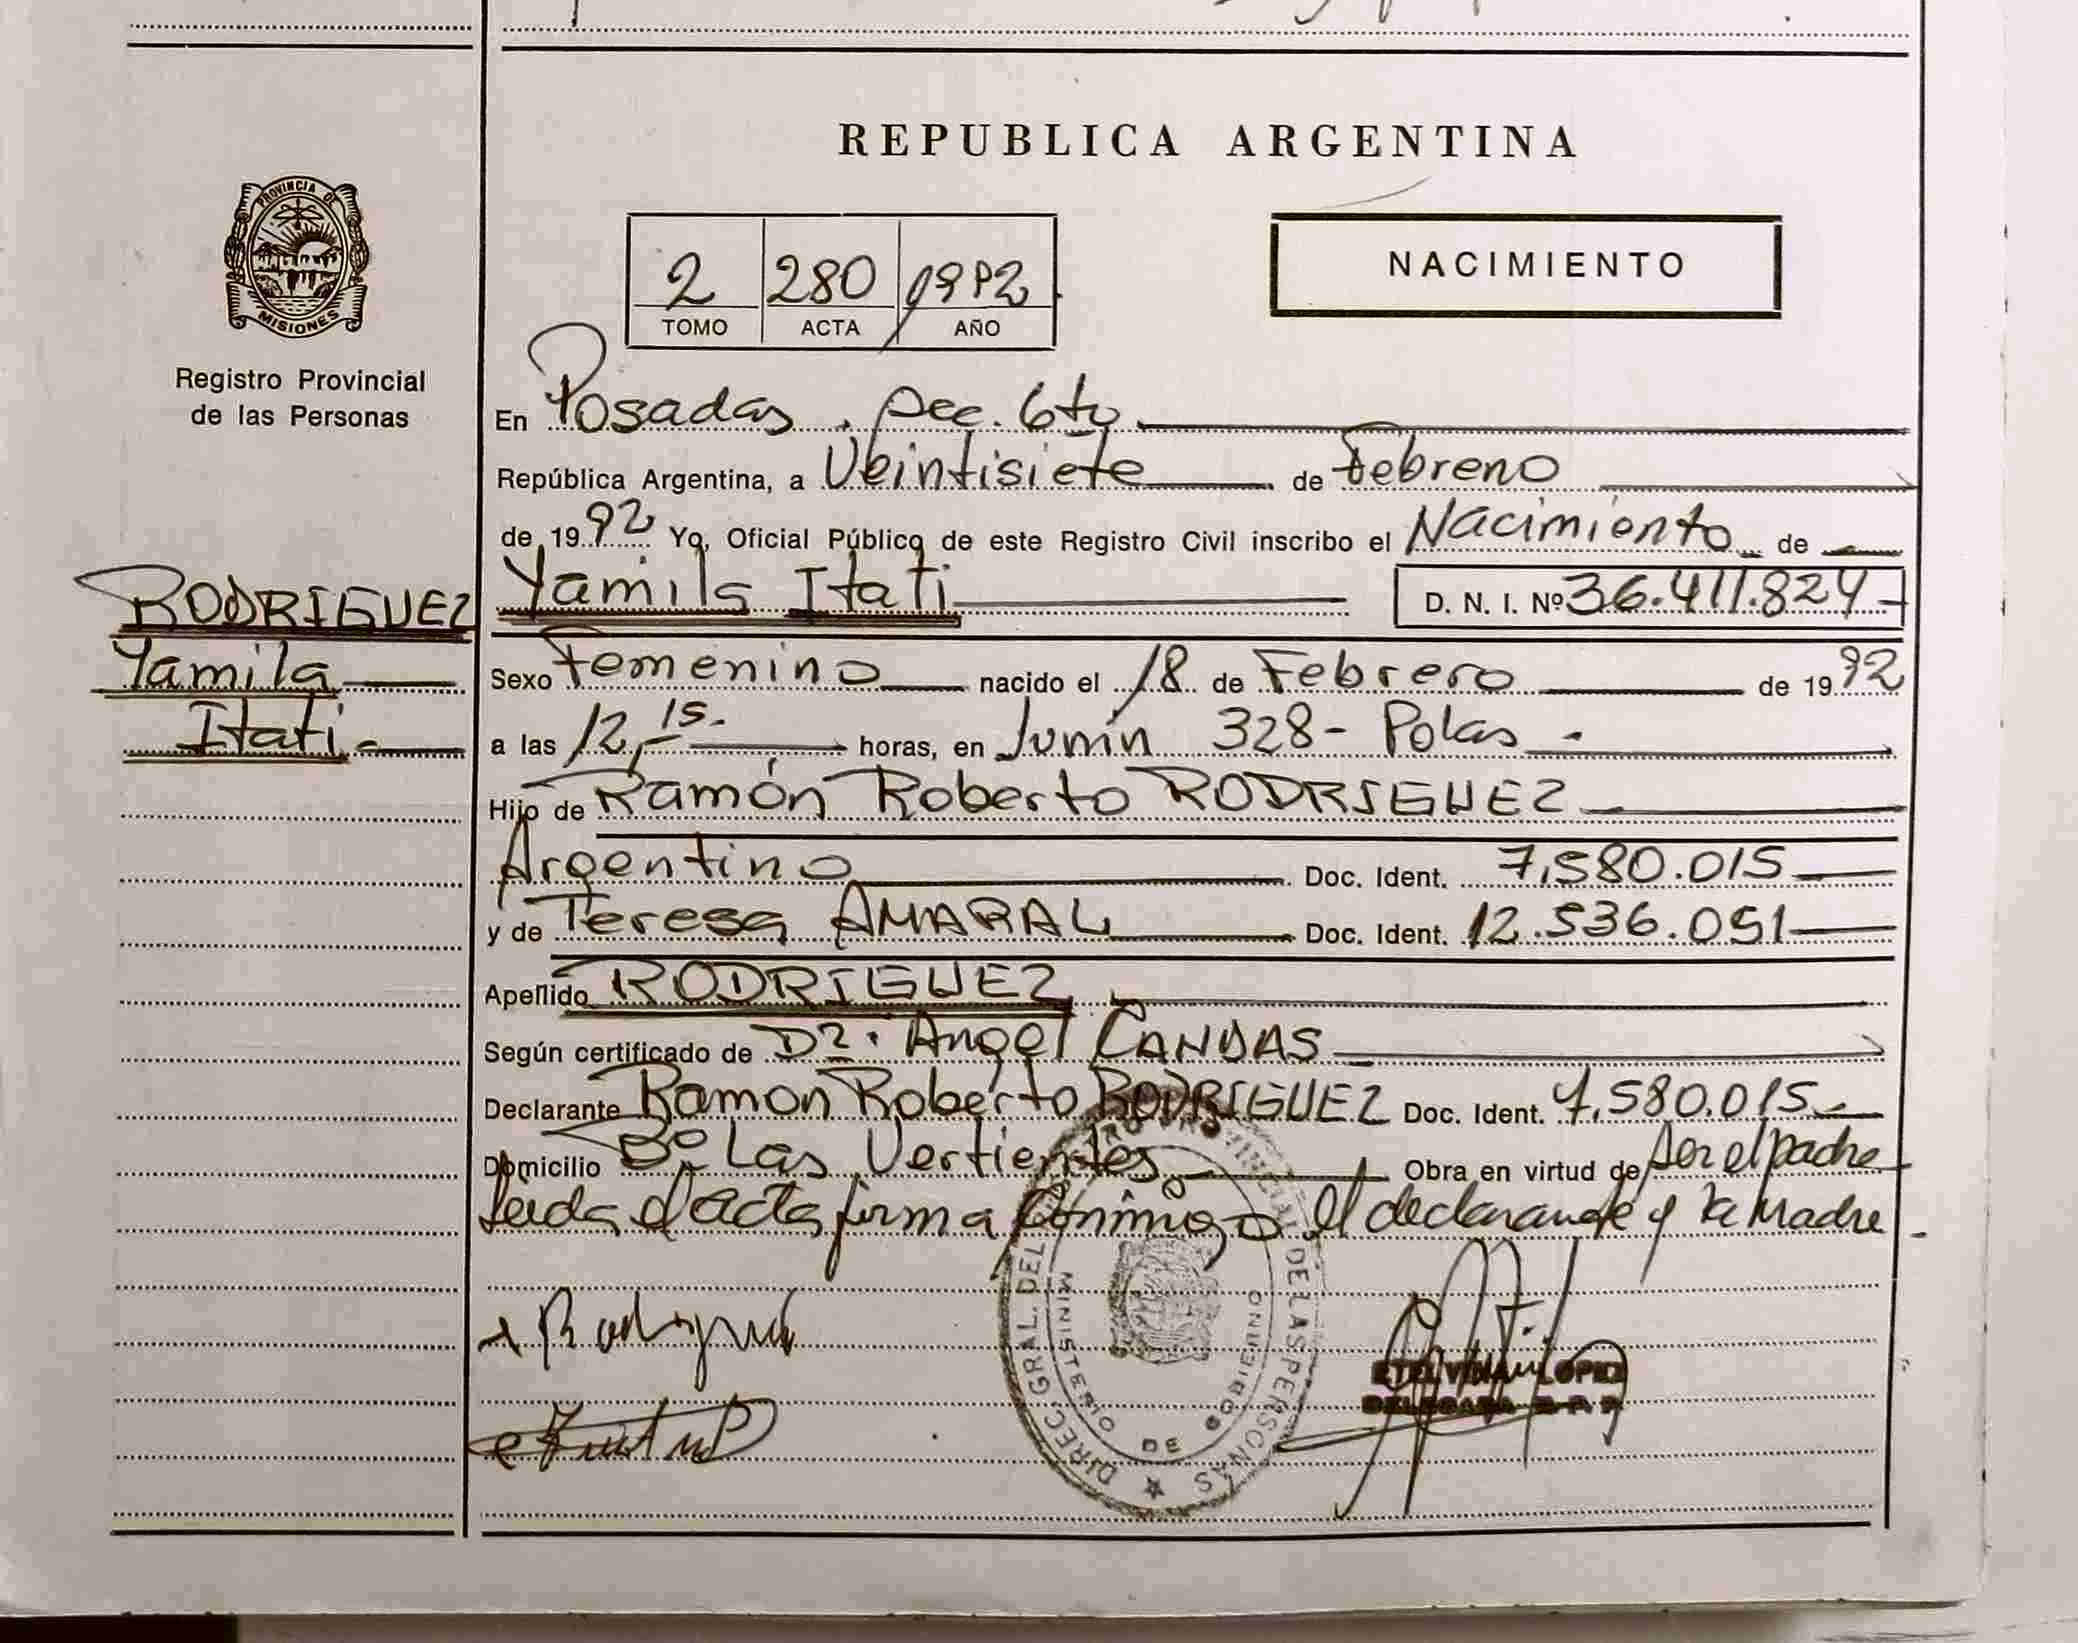 REPUBLICA ARGENTINA
PROVINCIA DE
MISIONES
Registro Provincial
de las Personas
2 280 1992
TOMO ACTA AÑO
NACIMIENTO
En Posadas. Secc. 6ta
República Argentina, a Veintisiete de Febrero
de 1992 Yo, Oficial Público de este Registro Civil inscribo el Nacimiento de
RODRIGUEZ
Yamila
Itati.-
Yamila Itati D. N. I. Nº 36.411.824
Sexo Femenino nacido el 18 de Febrero de 1992
a las 12,15. horas, en Junín 328- Pdas -
Hijo de Ramón Roberto RODRIGUEZ
Argentino Doc. Ident. 7.580.015
y de Teresa AMARAL Doc. Ident. 12.536.051
Apellido RODRIGUEZ
Según certificado de Dr. Angel CANDAS
Declarante Ramon Roberto RODRIGUEZ Doc. Ident. 7.580.015
Domicilio Bº Las Vertientes Obra en virtud de ser el padre
Leida el acta firma conmigo el declarante y la Madre
DIREC. GRAL. DEL REGISTRO PROVINCIAL DE LAS PERSONAS
MINISTERIO DE GOBIERNO
Rodriguez
ETELVINA LOPEZ
DELEGADA R. P. P.